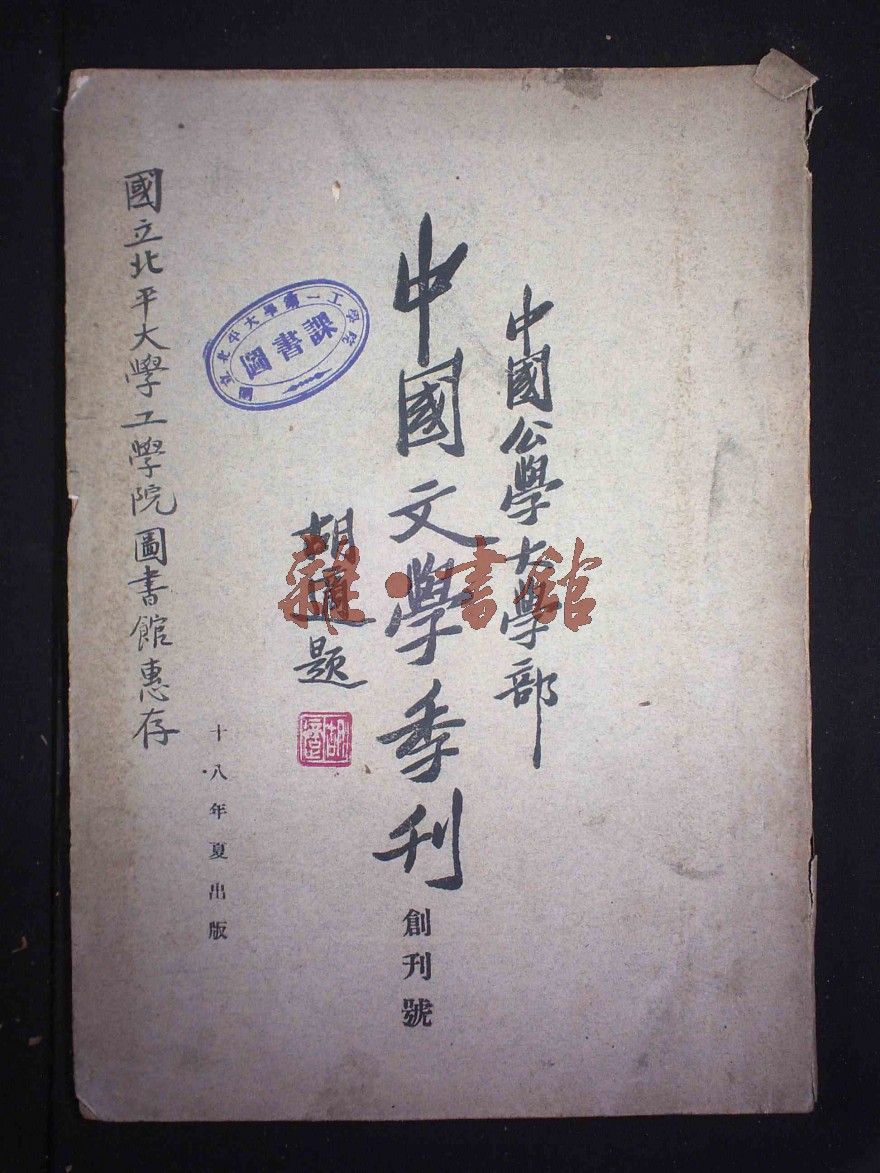 中國公學大學部
中國文學季刊
創刊號
胡適題
胡適
十八年夏出版
國立北平大學工學院圖書館惠存
國立北平大學第一工學院
圖書課
雜·書館